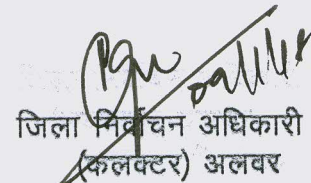 जिला निर्वाचन अधिकारी
(कलक्टर) अलवर